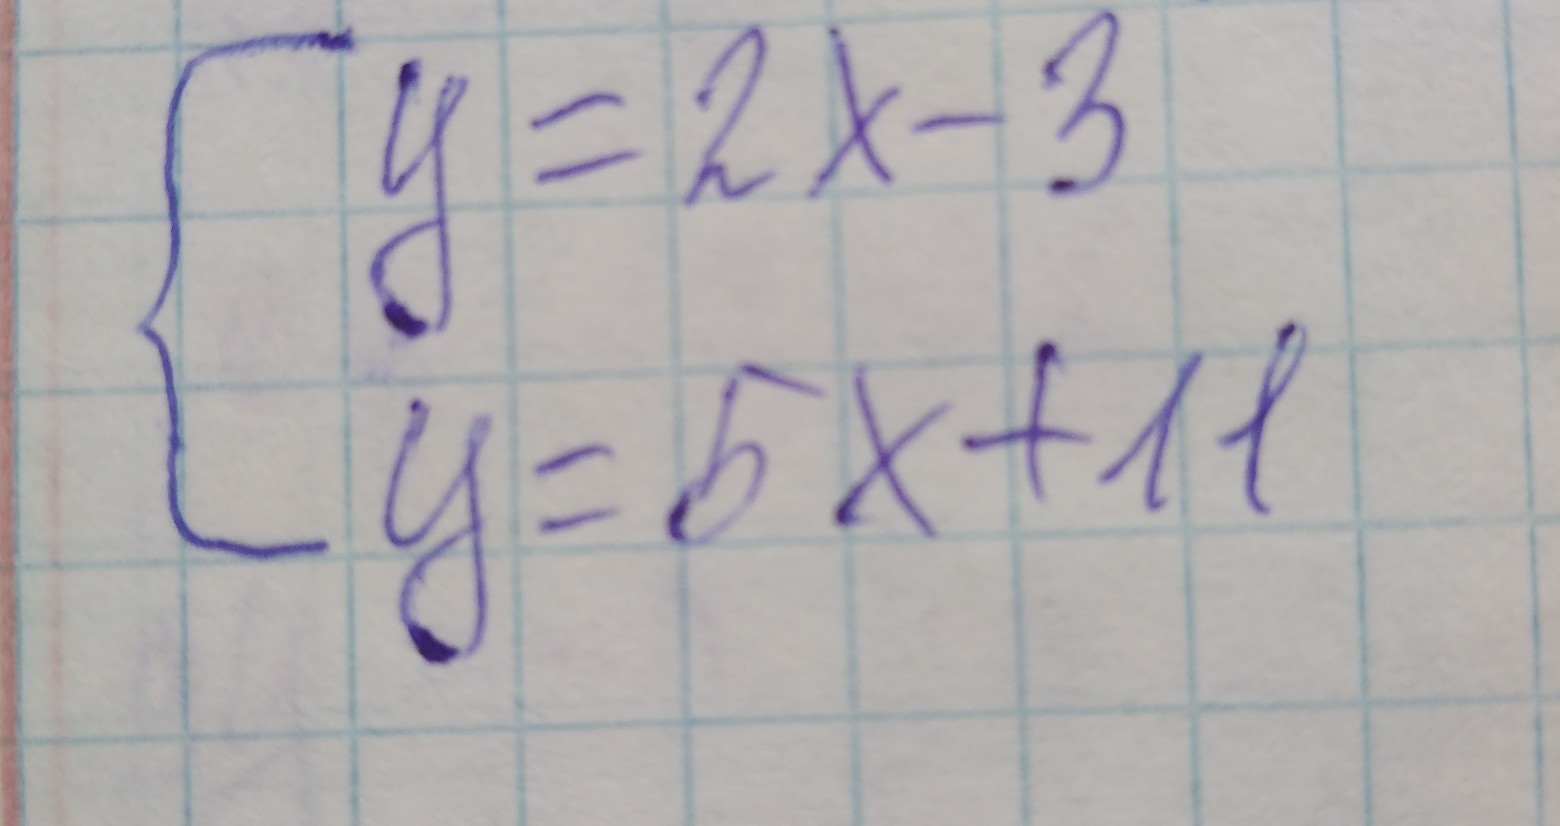 y = 2x - 3
y = 5x + 11